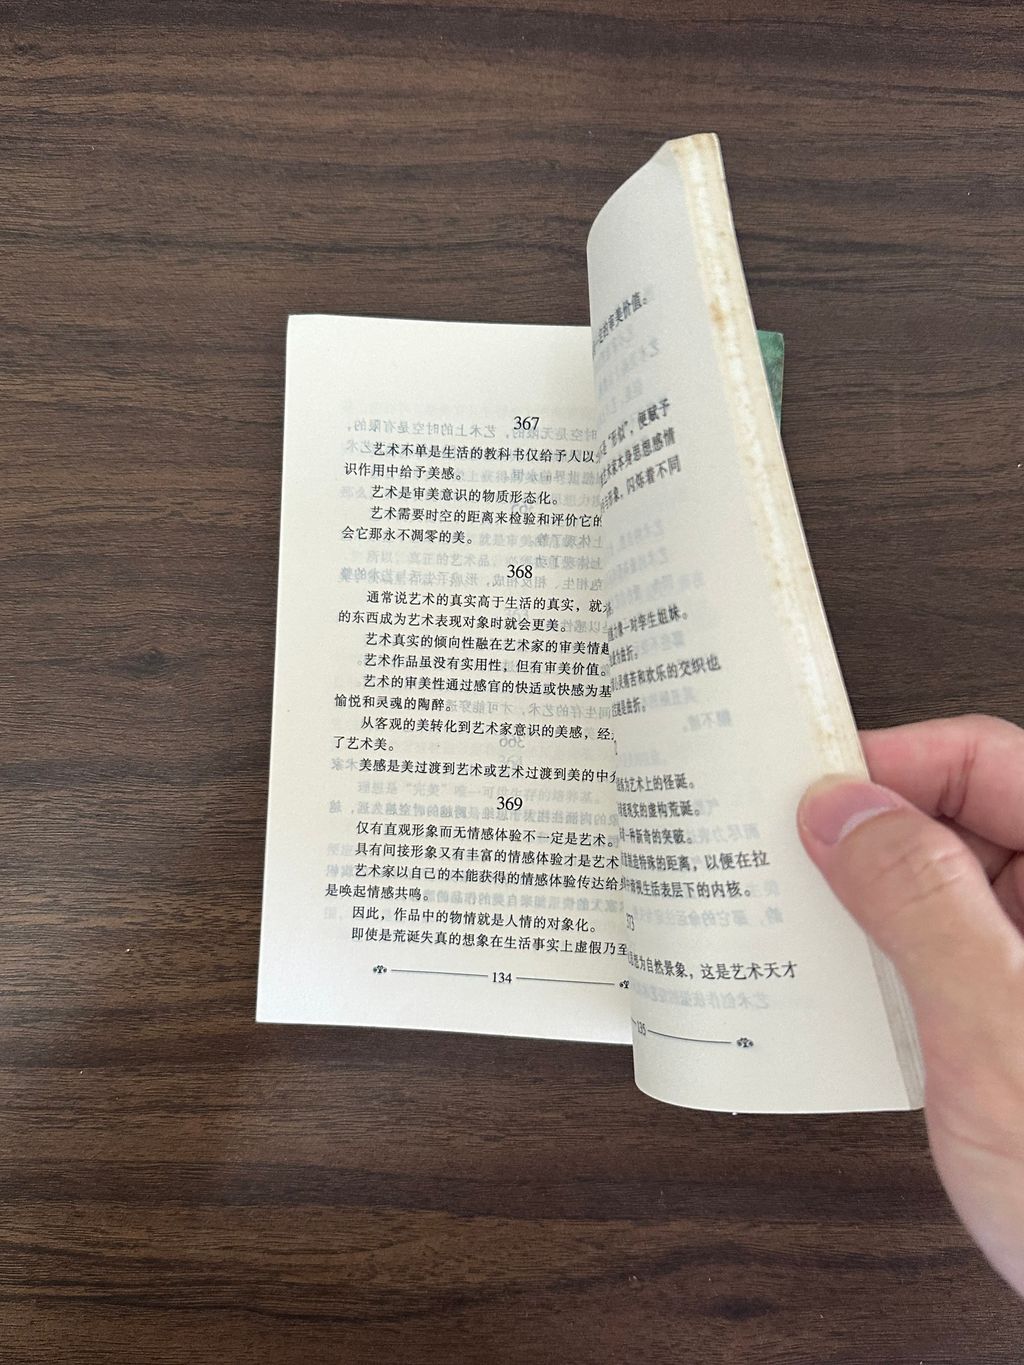 367
艺术不单是生活的教科书仅给予人以
识作用中给予美感。
艺术是审美意识的物质形态化。
艺术需要时空的距离来检验和评价它的
会它那永不凋零的美。
368
通常说艺术的真实高于生活的真实，就
的东西成为艺术表现对象时就会更美。
艺术真实的倾向性融在艺术家的审美情趣
艺术作品虽没有实用性，但有审美价值。
艺术的审美性通过感官的快适或快感为基
愉悦和灵魂的陶醉。
从客观的美转化到艺术家意识的美感，经
了艺术美。
美感是美过渡到艺术或艺术过渡到美的中
369
仅有直观形象而无情感体验不一定是艺术。
具有间接形象又有丰富的情感体验才是艺术
艺术家以自己的本能获得的情感体验传达给
是唤起情感共鸣。
因此，作品中的物情就是人情的对象化。
即使是荒诞失真的想象在生活事实上虚假乃至
134
的审美价值。
是“形似”，便赋予
艺术家本身思想感情
与形象，闪烁着不同
像一对孪生姐妹。
为曲折。
心灵痛苦和欢乐的交织也
是曲折。
为艺术上的怪诞。
现实的虚构荒诞。
一种新奇的突破。
造特殊的距离，以便在拉
视生活表层下的内核。
373
为自然景象，这是艺术天才
135